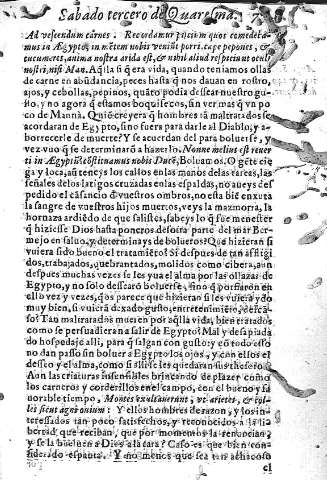 Sabado tercero de Quaresma. 7
Ad vescendum carnes. Recordamur piscium quos comedeba-
mus in Ægypto, in mẽtem nobis veniũt porri, cepe pepones, &
cucumeres, anima nostra arida est, & nihil aliud respiciunt oculi
nostri, nisi Man. Aq̃lla si q̃ era vida, quando teniamos ollas
de carne en abũdancia, peces hasta q̃ nos dauan en rostro,
ajos, y cebollas, pepinos, quãto podia dessear nuestro gu-
sto, y no agora q̃ estamos boquisecos, sin ver mas q̃ vn po
co de Mannà. Quiẽ creyera q̃ hombres tã maltratados se
acordaran de Egypto, sino fuera para darle al Diablo, y a-
borrecerle de muerte? Y se acuerdan del para boluerse, y
vez vuo q̃ se determinarõ a hazerlo. Nonne melius est reuer
ti in Ægyptũ? cõstituamus nobis Ducẽ, Boluamos. O gẽte cie
ga y loca, aũ teneys los callos en las manos de las tareas, las
señales de los latigos cruzadas en las espaldas, no aueys des
pedido el cãsancio d̃ vuestros ombros, no esta biẽ enxuta
la sangre de vuestros hijos muertos, veys la mazmorra, la
hornaza ardiẽdo de que salistes, sabeys lo q̃ fue menester
q̃ hiziesse Dios hasta poneros desotra parte del mar Ber-
mejo en saluo, y determinays de bolueros? Que hizieran si
vuiera sido bueno el tratamiẽto? si despues de tan afligi-
dos, trabajados, quebrantados, molidos como cibera, aun
despues muchas vezes se les yua el alma por las ollazas de
Egypto, y no solo dessearõ boluerse, sino q̃ porfiaron en
ello vez y vezes, q̃ os parece que hizieran si les vuiera ydo
muy bien, si vuierã dexado gusto, entretenimiẽto, desca-
so? Tan maltratados mueren por aq̃lla vida, bien tratados
como se persuadieran a salir de Egypto? Mal y desapiada
do hospedaje alli, para q̃ salgan con gusto: y cõ todo esso
no dan passo sin boluer a Egypto los ojos, y con ellos el
desseo y el alma, como si alli se les quedaran sus thesoros.
Aun las criaturas insensibles brincando de plazer como
los carneros y corderillos en el campo, con el bueno y fa
uorable tiempo, Montes exultauerunt, vt arietes, & col-
les sicut agni ouium: Y ellos hombres de razon, y los in-
teressados tan poco satisfechos, y reconocidos à la li-
bertad, que reciban, que por momentos la renuncian,
y se la bueluen a Dios a la cara? Caso es que bien con-
siderado espanta. Y no menos que sea tan achacoso
el